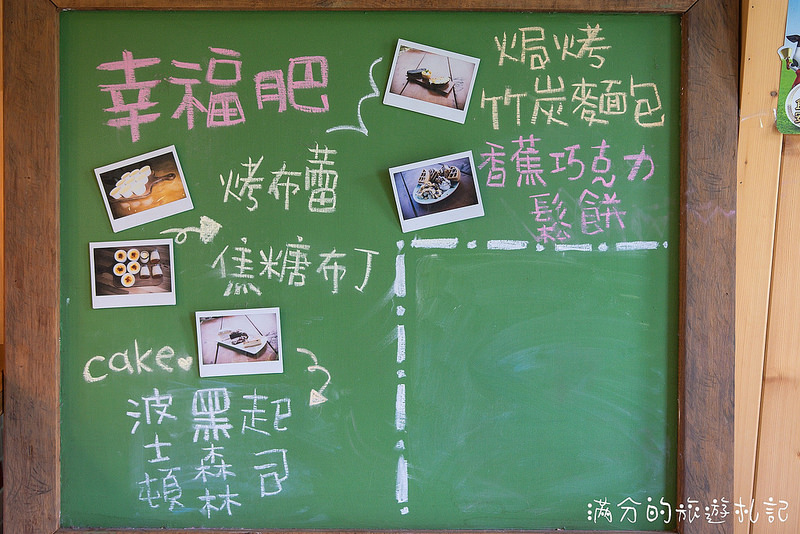 幸福肥
焗烤
竹炭麵包
烤布蕾
香蕉巧克力
鬆餅
焦糖布丁
cake
波士頓
黑森林
起司
滿分的旅遊札記